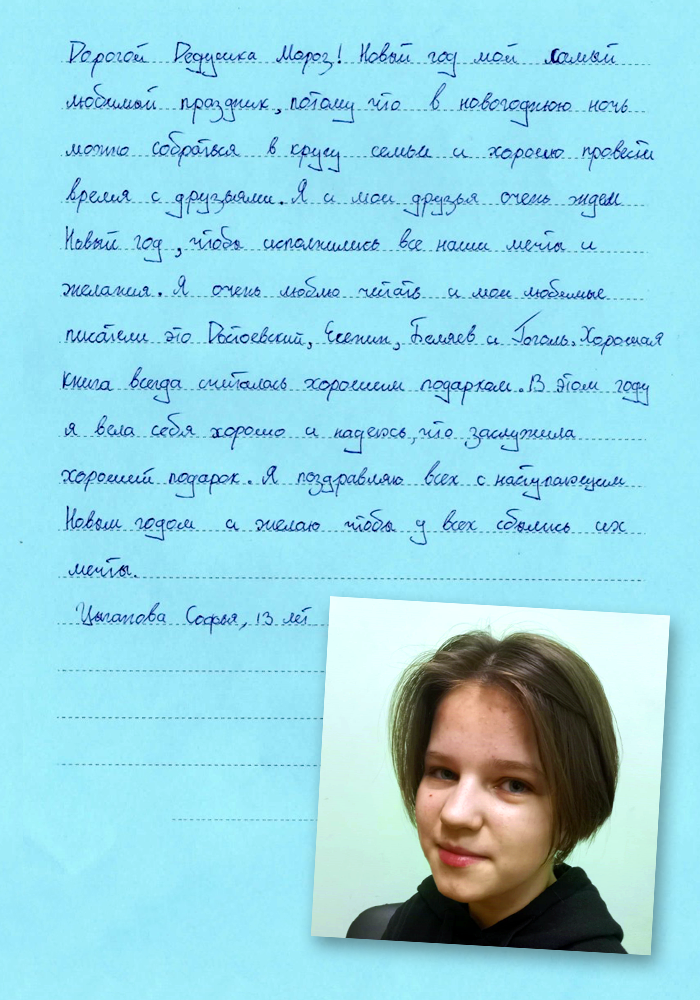 Дорогой Дедушка Мороз! Новый год мой самый
любимый праздник, потому что в новогоднюю ночь
можно собраться в кругу семьи и хорошо провести
время с друзьями. Я и мои друзья очень ждем
Новый год, чтобы исполнились все наши мечты и
желания. Я очень люблю читать и мои любимые
писатели это Достоевский, Есенин, Беляев и Гоголь. Хорошая
книга всегда считалась хорошим подарком. В этом году
я вела себя хорошо и надеюсь, что заслужила
хороший подарок. Я поздравляю всех с наступающим
Новым годом и желаю чтобы у всех сбылись их
мечты.
Цыганова Софья, 13 лет